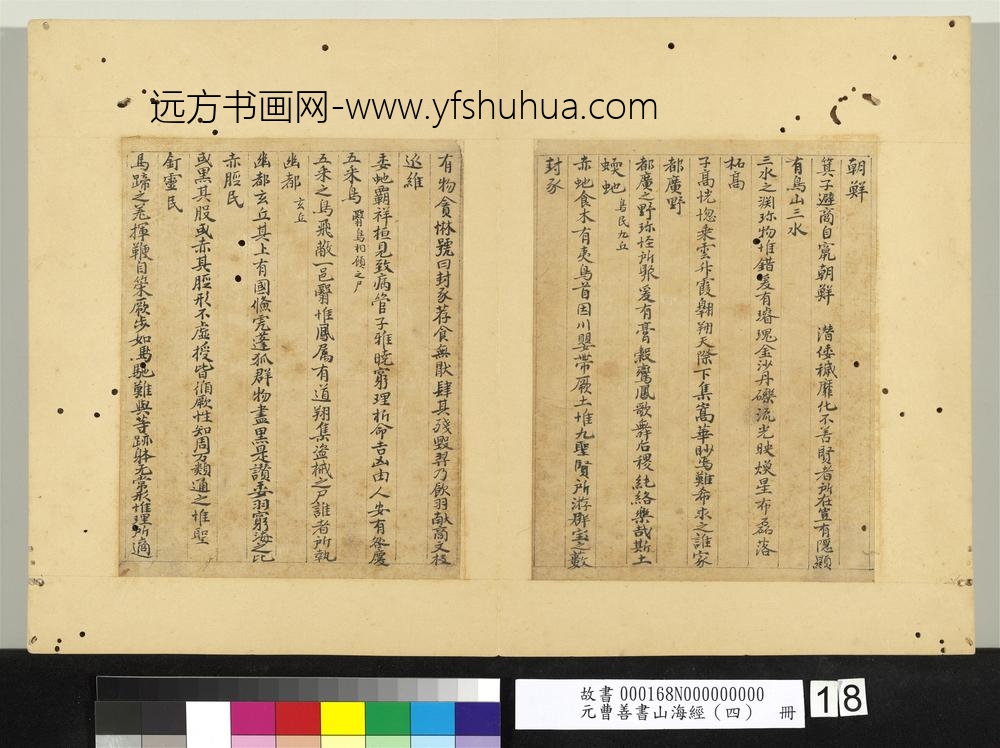 远方书画网-www.yfshuhua.com
朝鮮
箕子避商自竄朝鮮 潛倭穢靡化不善賢者所在豈有隱顯
有鳥山三水
三水之淵珍物惟錯爰有璿瑰金沙丹礫流光映煥星布磊落
柘高
子高恍惚乘雲升霞翱翔天際下集嵩華眇焉難希求之誰家
都廣野
都廣之野珍怪所聚爰有膏穀鸞鳳歌舞后稷純絡樂哉斯土
蝡虵 鳥民九丘
赤虵食木有夷鳥首因川嬰帶厥土惟九聖賢所游群寶之藪
封豕
有物貪惏號曰封豕荐食無猒肆其殘毀羿乃飲羽獻商文枝
延維
委虵霸祥桓見致病管子雅曉窮理折命吉凶由人安有咎慶
五采鳥 翳鳥相顧之尸
五采之鳥飛蔽一邑翳惟鳳屬有道翔集盜械之尸誰者所執
幽都 玄丘
幽都玄丘其上有國儵虎蓬狐群物盡黑是讚委羽窮海之北
赤脛民
或黑其股或赤其脛形不虛授皆循厥性知周万類通之惟聖
釘靈民
馬蹄之羌揮鞭自策厥步如馬馳難與等跡躰无常形惟理所適
故書 000168N000000000
元曹善書山海經(四) 冊
18